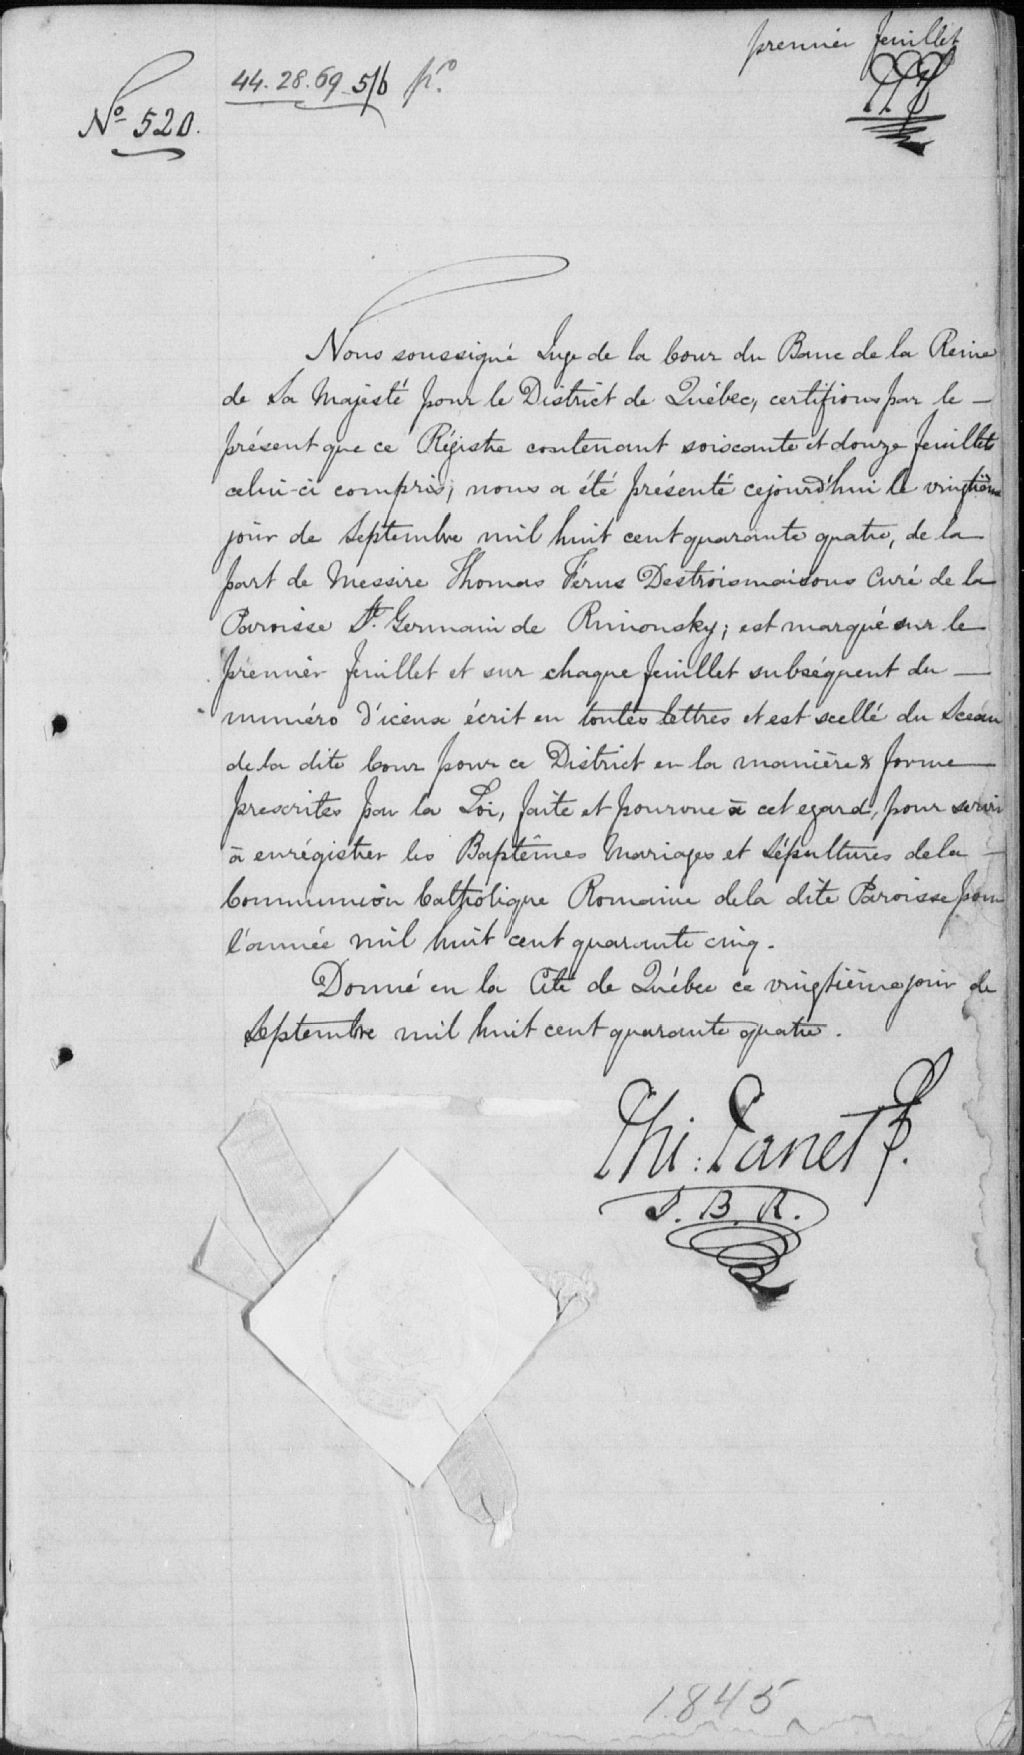 premier feuillet
44.28.69 5/6 po
No 520.
Nous soussigné Juge de la Cour du Banc de la Reine
de Sa Majesté pour le District de Québec, certifions par le —
présent que ce Régistre contenant soixante et douze feuillets
celui-ci compris; nous a été présenté cejourd'hui le vingtième
jour de Septembre mil huit cent quarante quatre, de la
part de Messire Thomas Férus Destroismaisons Curé de la
Paroisse St. Germain de Rimousky; est marqué sur le
premier feuillet et sur chaque feuillet subséquent du —
numéro d'iceux écrit en toutes lettres et est scellé du Sceau
de la dite Cour pour ce District en la manière & forme
prescrites par la Loi, faite et pourvue à cet egard, pour servir
à enrégistrer les Baptêmes Mariages et Sépultures dela —
Communion Catholique Romaine dela dite Paroisse pour
l'année mil huit cent quarante cinq.
Donné en la Cité de Québec ce vingtième jour de
Septembre mil huit cent quarante quatre.
Phi: Panet
J. B. R.
1845